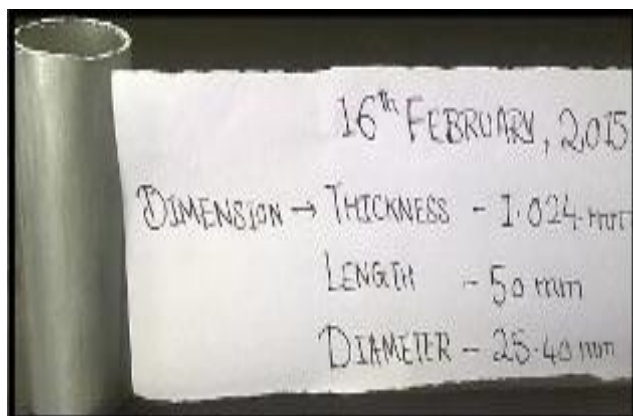 16th FEBRUARY, 2015
DIMENSION → THICKNESS - 1.024 mm
LENGTH - 50 mm
DIAMETER - 25.40 mm